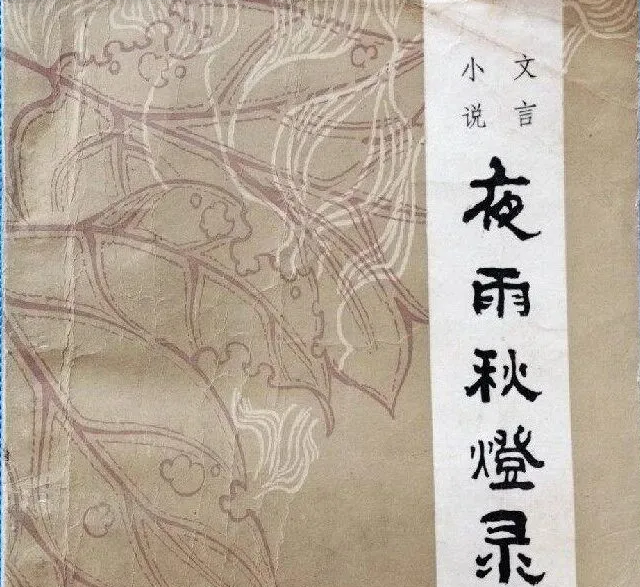 文言
小说
夜雨秋燈录